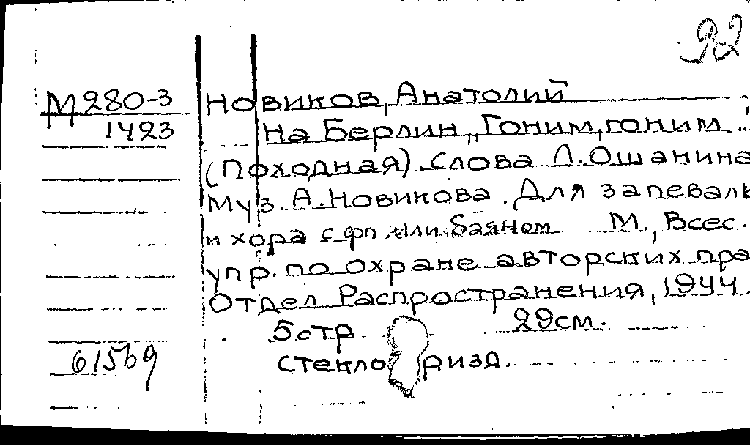 92
М280-3 Новиков, Анатолий
1423 На Берлин „Гоним, гоним..
(Походная). Слова Л. Ошанина
Муз. А. Новикова. Для запеваль
и хора с фп или баяном М., Всес.
упр. по охране авторских пра
Отдел Распространения, 1944.
5 стр. 29 см.
61569 стекло ризд.